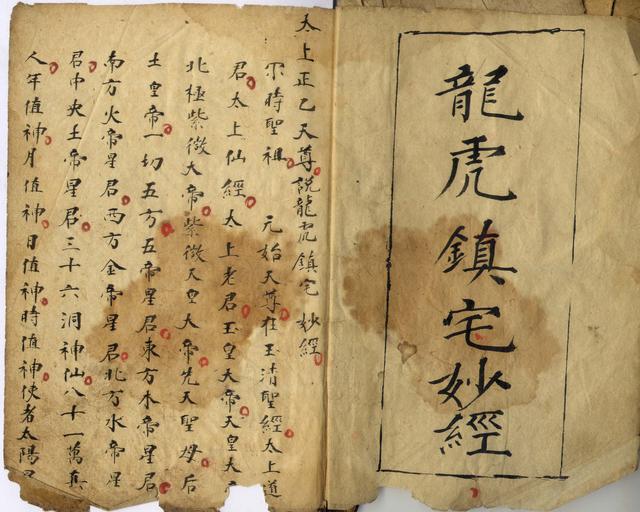 龍虎鎮宅妙經
太上正乙天尊說龍虎鎮宅妙經
尒時聖祖元始天尊在玉清聖經太上道
君太上仙經太上老君玉皇大帝天皇大
北極紫微大帝紫微天皇大帝先天聖母后
土皇帝一切五方五帝星君東方木帝星君
南方火帝星君西方金帝星君北方水帝星
君中央土帝星君三十六洞神仙八十一萬真
人年值神月值神日值神時值神使者太陽